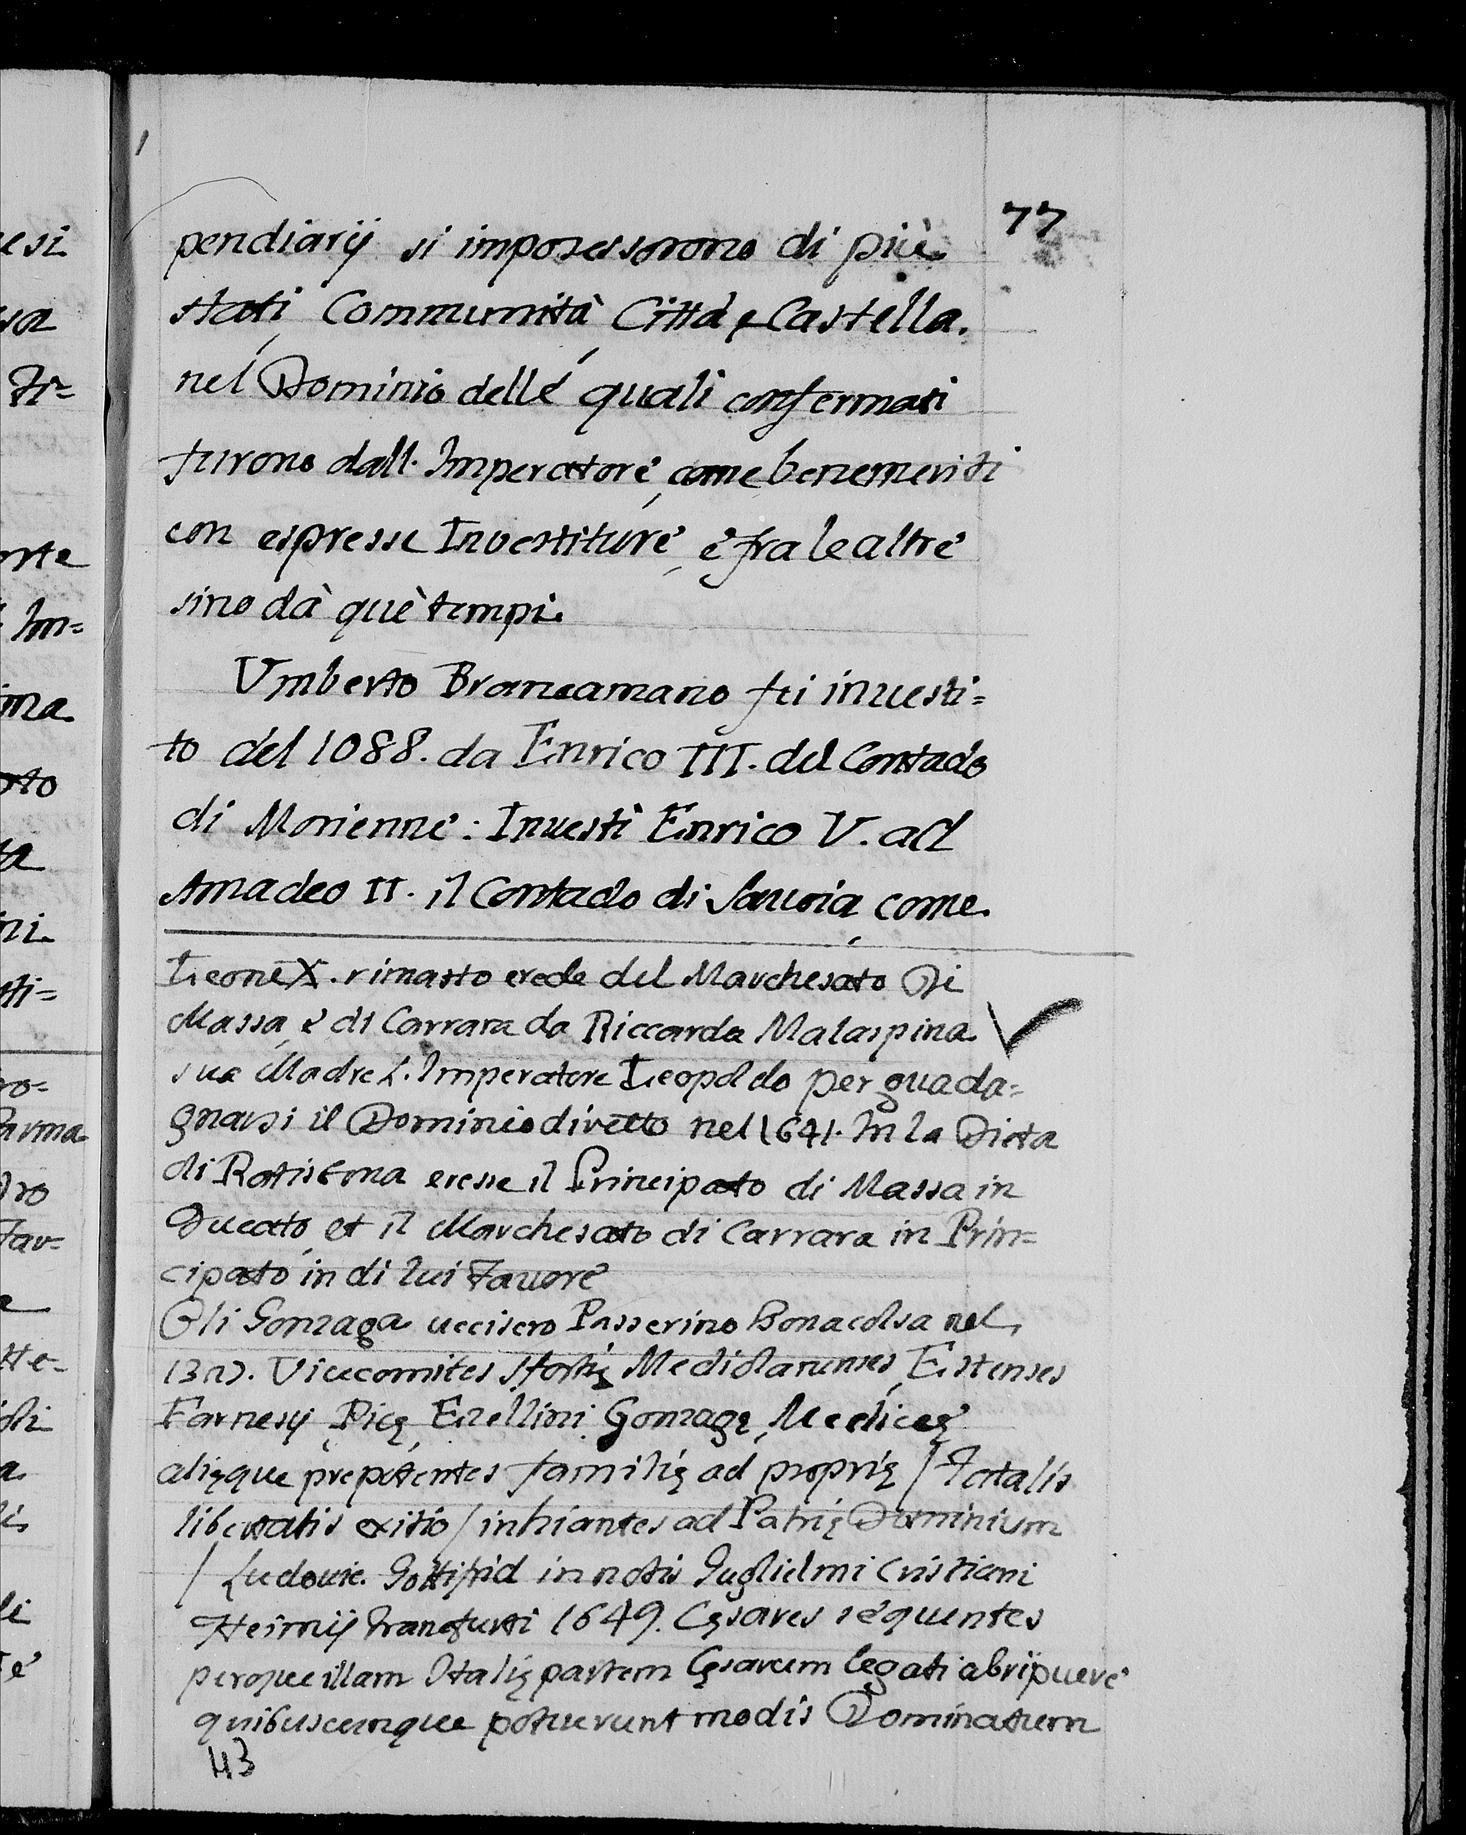 77
pendiarij si impossessorono di più
stati, Communità, Città, e Castella,
nel Dominio delle quali confermati
furono dall' Imperatore, come benemeriti
con espresse Inuestiture, e fra le altre
sino dà què tempi.
Vmberto Brancamano fù inuesti=
to del 1088. da Enrico III. del Contado
di Morienne: Inuestì Enrico V. all
Amadeo II. il Contado di Sauoia, come
Leone X. rimasto erede del Marchesato Di
Massa, e di Carrara da Riccarda Malaspina
sua Madre L'Imperatore Leopoldo per guada=
gnarsi il Dominio diretto nel 1641. In la Dieta
di Ratisbona eresse il Principato di Massa in
Ducato, et il Marchesato di Carrara in Prin=
cipato, in di lui Fauore
Gli Gonzaga uccisero Passerino Bonacolsa nel
Vicecomites, Sfortię Mediolanenses, Estenses
Farnesij, Picę, Ezellini, Gonzagę, Medicęę
alięque prepotentes familię ad proprię / Fatalis
libertatis exitio / inhiantes ad Patrię Dominium
/ Ludouic. Gottifrid in notis Guglielmi Cristiani
Heimij Francfurti 1649. Cęsares sequentes
perque illam Italię partem Cęsarum legati abripuere
quibuscumque potuerunt modis Dominatum
113